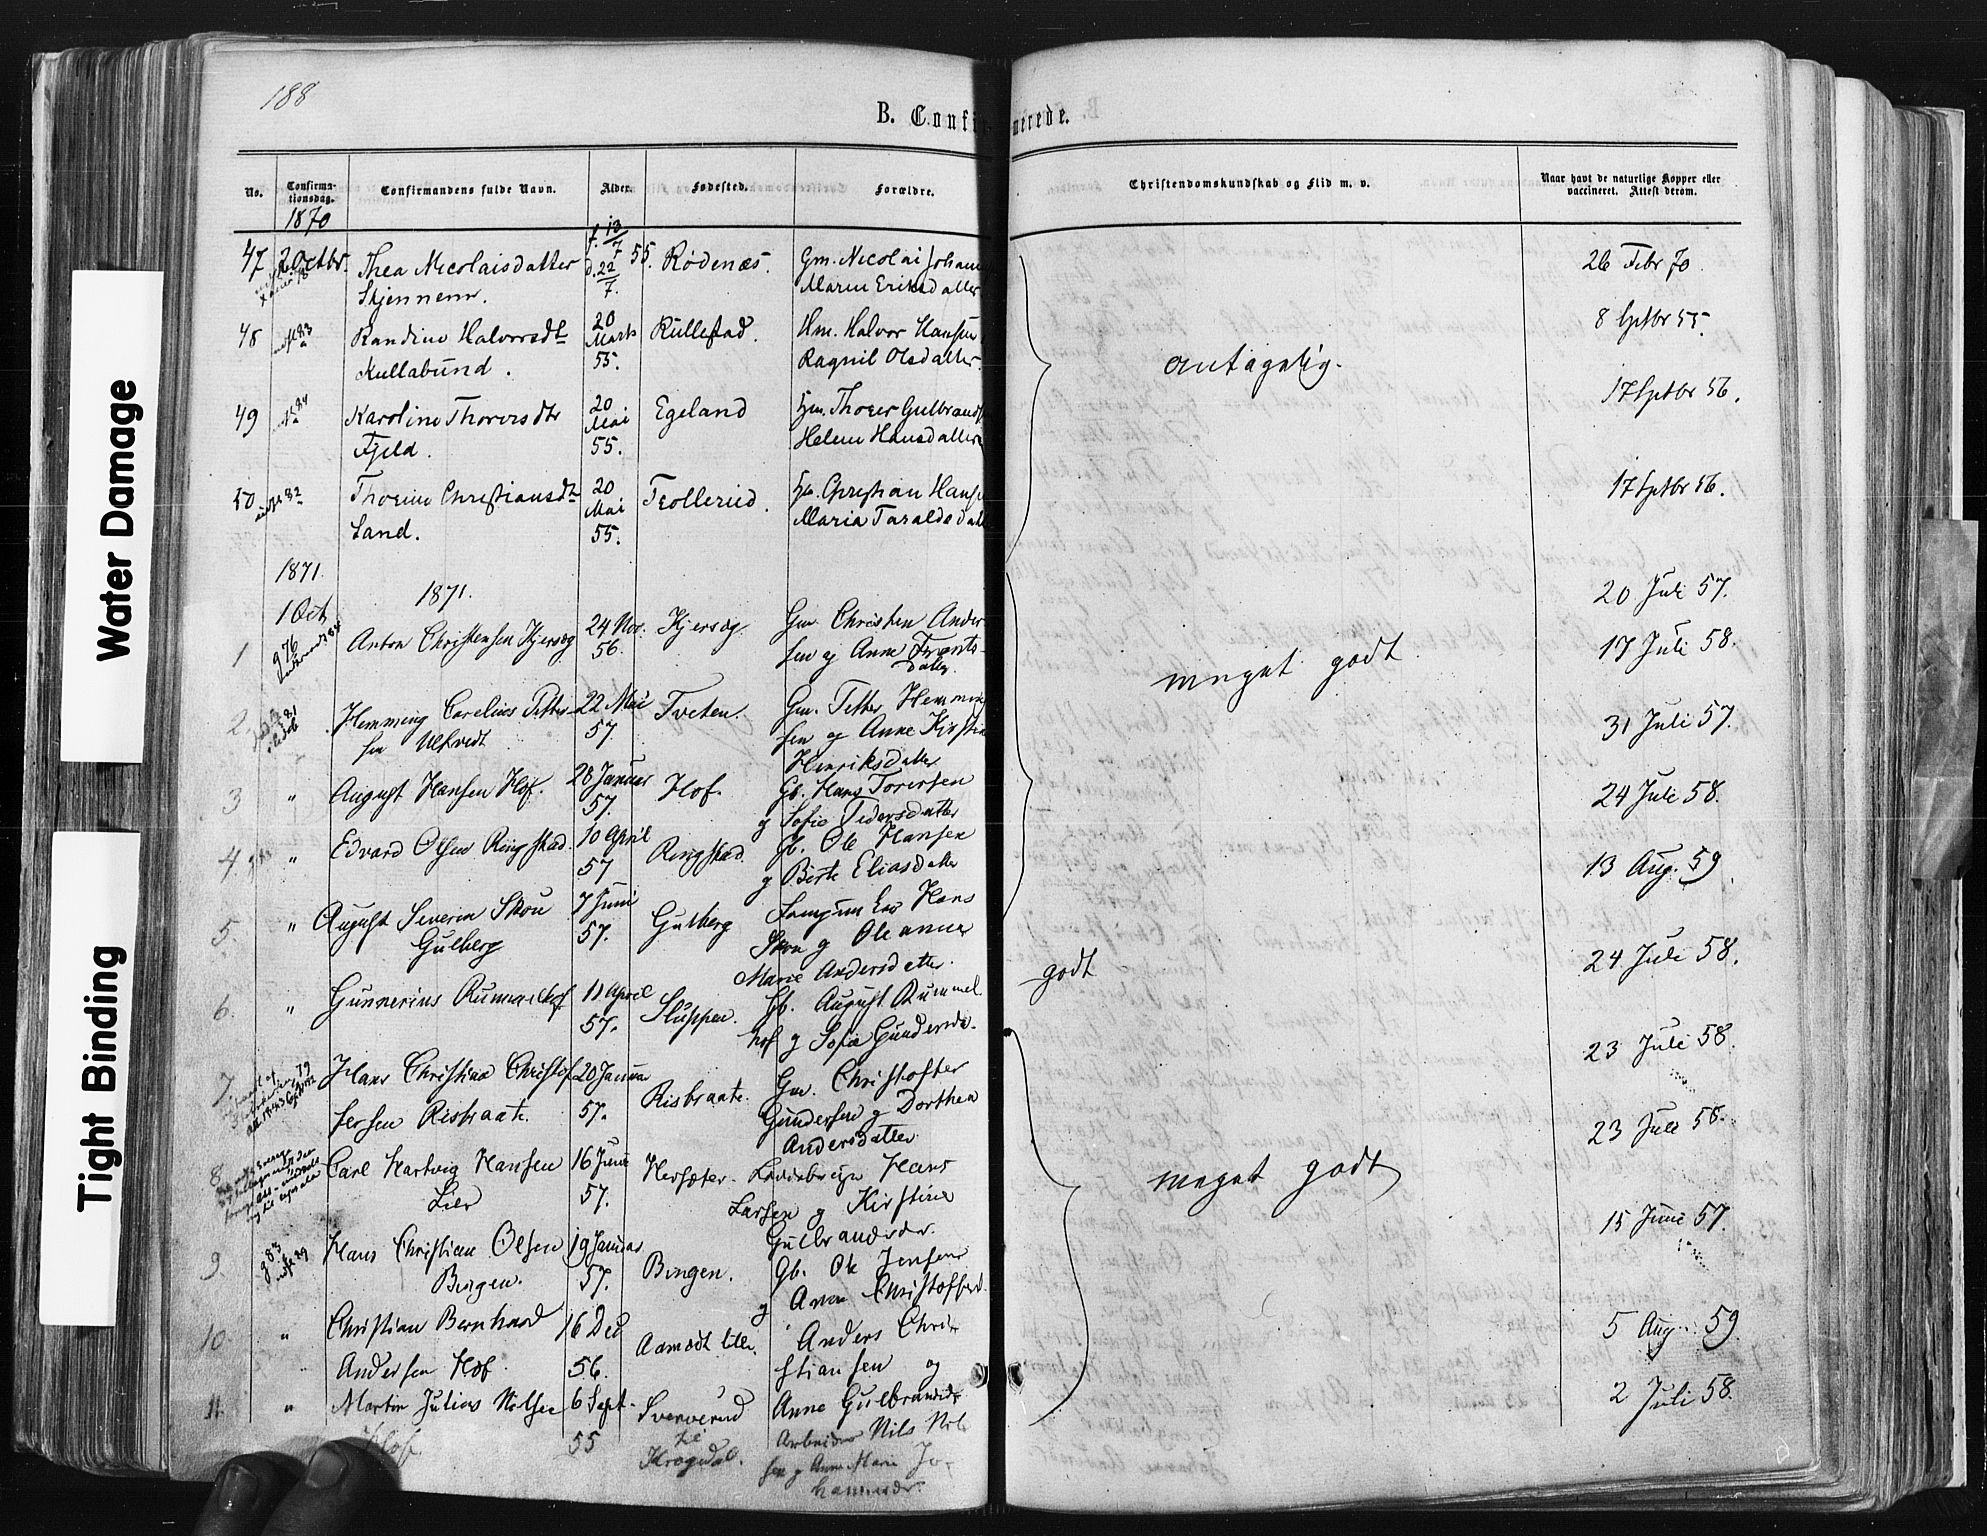 188
B. Confi nerede.
No. Confirma-tionsdag. Confirmandens fulde Navn. Alder. Fødested. Forældre. Christendomskundskab og Flid m. v. Naar havt de naturlige Kopper eller vaccineret. Attest derom.
1870
47 2 Octbr. Thea Nicolaisdatter f. 13/7 55. Rödenæs. Gm. Nicolai Johan 26 Febr 70.
Skjennem. d. 22/7. Maren Eriksdatter
48 Randine Halvorsdt 20 Rullestad. Hm. Halvor Hansen 8 Sptbr 55.
Kullabund. Marts 55. Ragnil Olsdatter
antagelig.
49 Karoline Thorersdtr 20 Egeland Hm. Thorer Gulbrands 17 Sptbr 56.
Fjeld. Mai 55. Helene Hansdatter
50 82 Thorine Christiansdt 20 Trollerud. Christian Hans 17 Sptbr 56.
Sand. Mai 55. Maria Taraldsdatt
1871. 1871.
20 Juli 57.
1 1 Oct Anton Christensen Kjersög 24 Nov. Kjersög. Gm. Christen Ander 17 Juli 58.
976 56. sen og Anne Frants-
datter
meget godt
2 81 Hemming Carelius Petter- 22 Mai Tveten. Gm. Petter Hemming 31 Juli 57.
sen Ulkvedt 57 sen og Anne Kirstin
Henriksdatter
3 " August Hansen Hof. 28 Januar Hof. Gb. Hans Torersen 24 Juli 58.
57. og Sofie Pedersdatter
4 " Edvard Olsen Ringstad. 10 April Ringstad. Gb. Ole Hansen 13 Aug. 59.
57 og Berte Eliasdatter
5. " August Severin Skou 7 Juni Gulberg Hans 24 Juli 58.
Gulberg 57. Skou og Oleanna
Marie Andersdatter.
godt
6. " Gunnerius Rummelhof 11 April Sluppen. Gb. August Rummel- 23 Juli 58.
57. hof og Sofie Gundersda.
7. 79 Hans Christian Christof 20 Januar Risbraate. Gm. Christoffer 23 Juli 58.
fersen Risbraate. 57. Gundersen og Dorthea
Andersdatter
8 Carl Hartvig Hansen 16 Juni Hersæter. Hans
Lier 57. Larsen og Kirstine
Gulbrandsdr.
meget godt
15 Juni 57.
9 983 Hans Christian Olsen 19 Januar Bingen. Gb. Ole Jensen
Bingen. 57. og Anne Christoffersd.
10 " Christian Bernhard 16 Dec Aamodt lille. Anders Chri- 5 Aug. 59.
Andersen Hof 56. stiansen og
Anne Gulbrandsdr
11. " Martin Julius Nilsen 6 Sept. Sververud Arbeider Nils Nil 2 Juli 58.
Hof 55 Krogedal. sen og Anne Marie Jo-
hannesdr.
Water Damage
Tight Binding